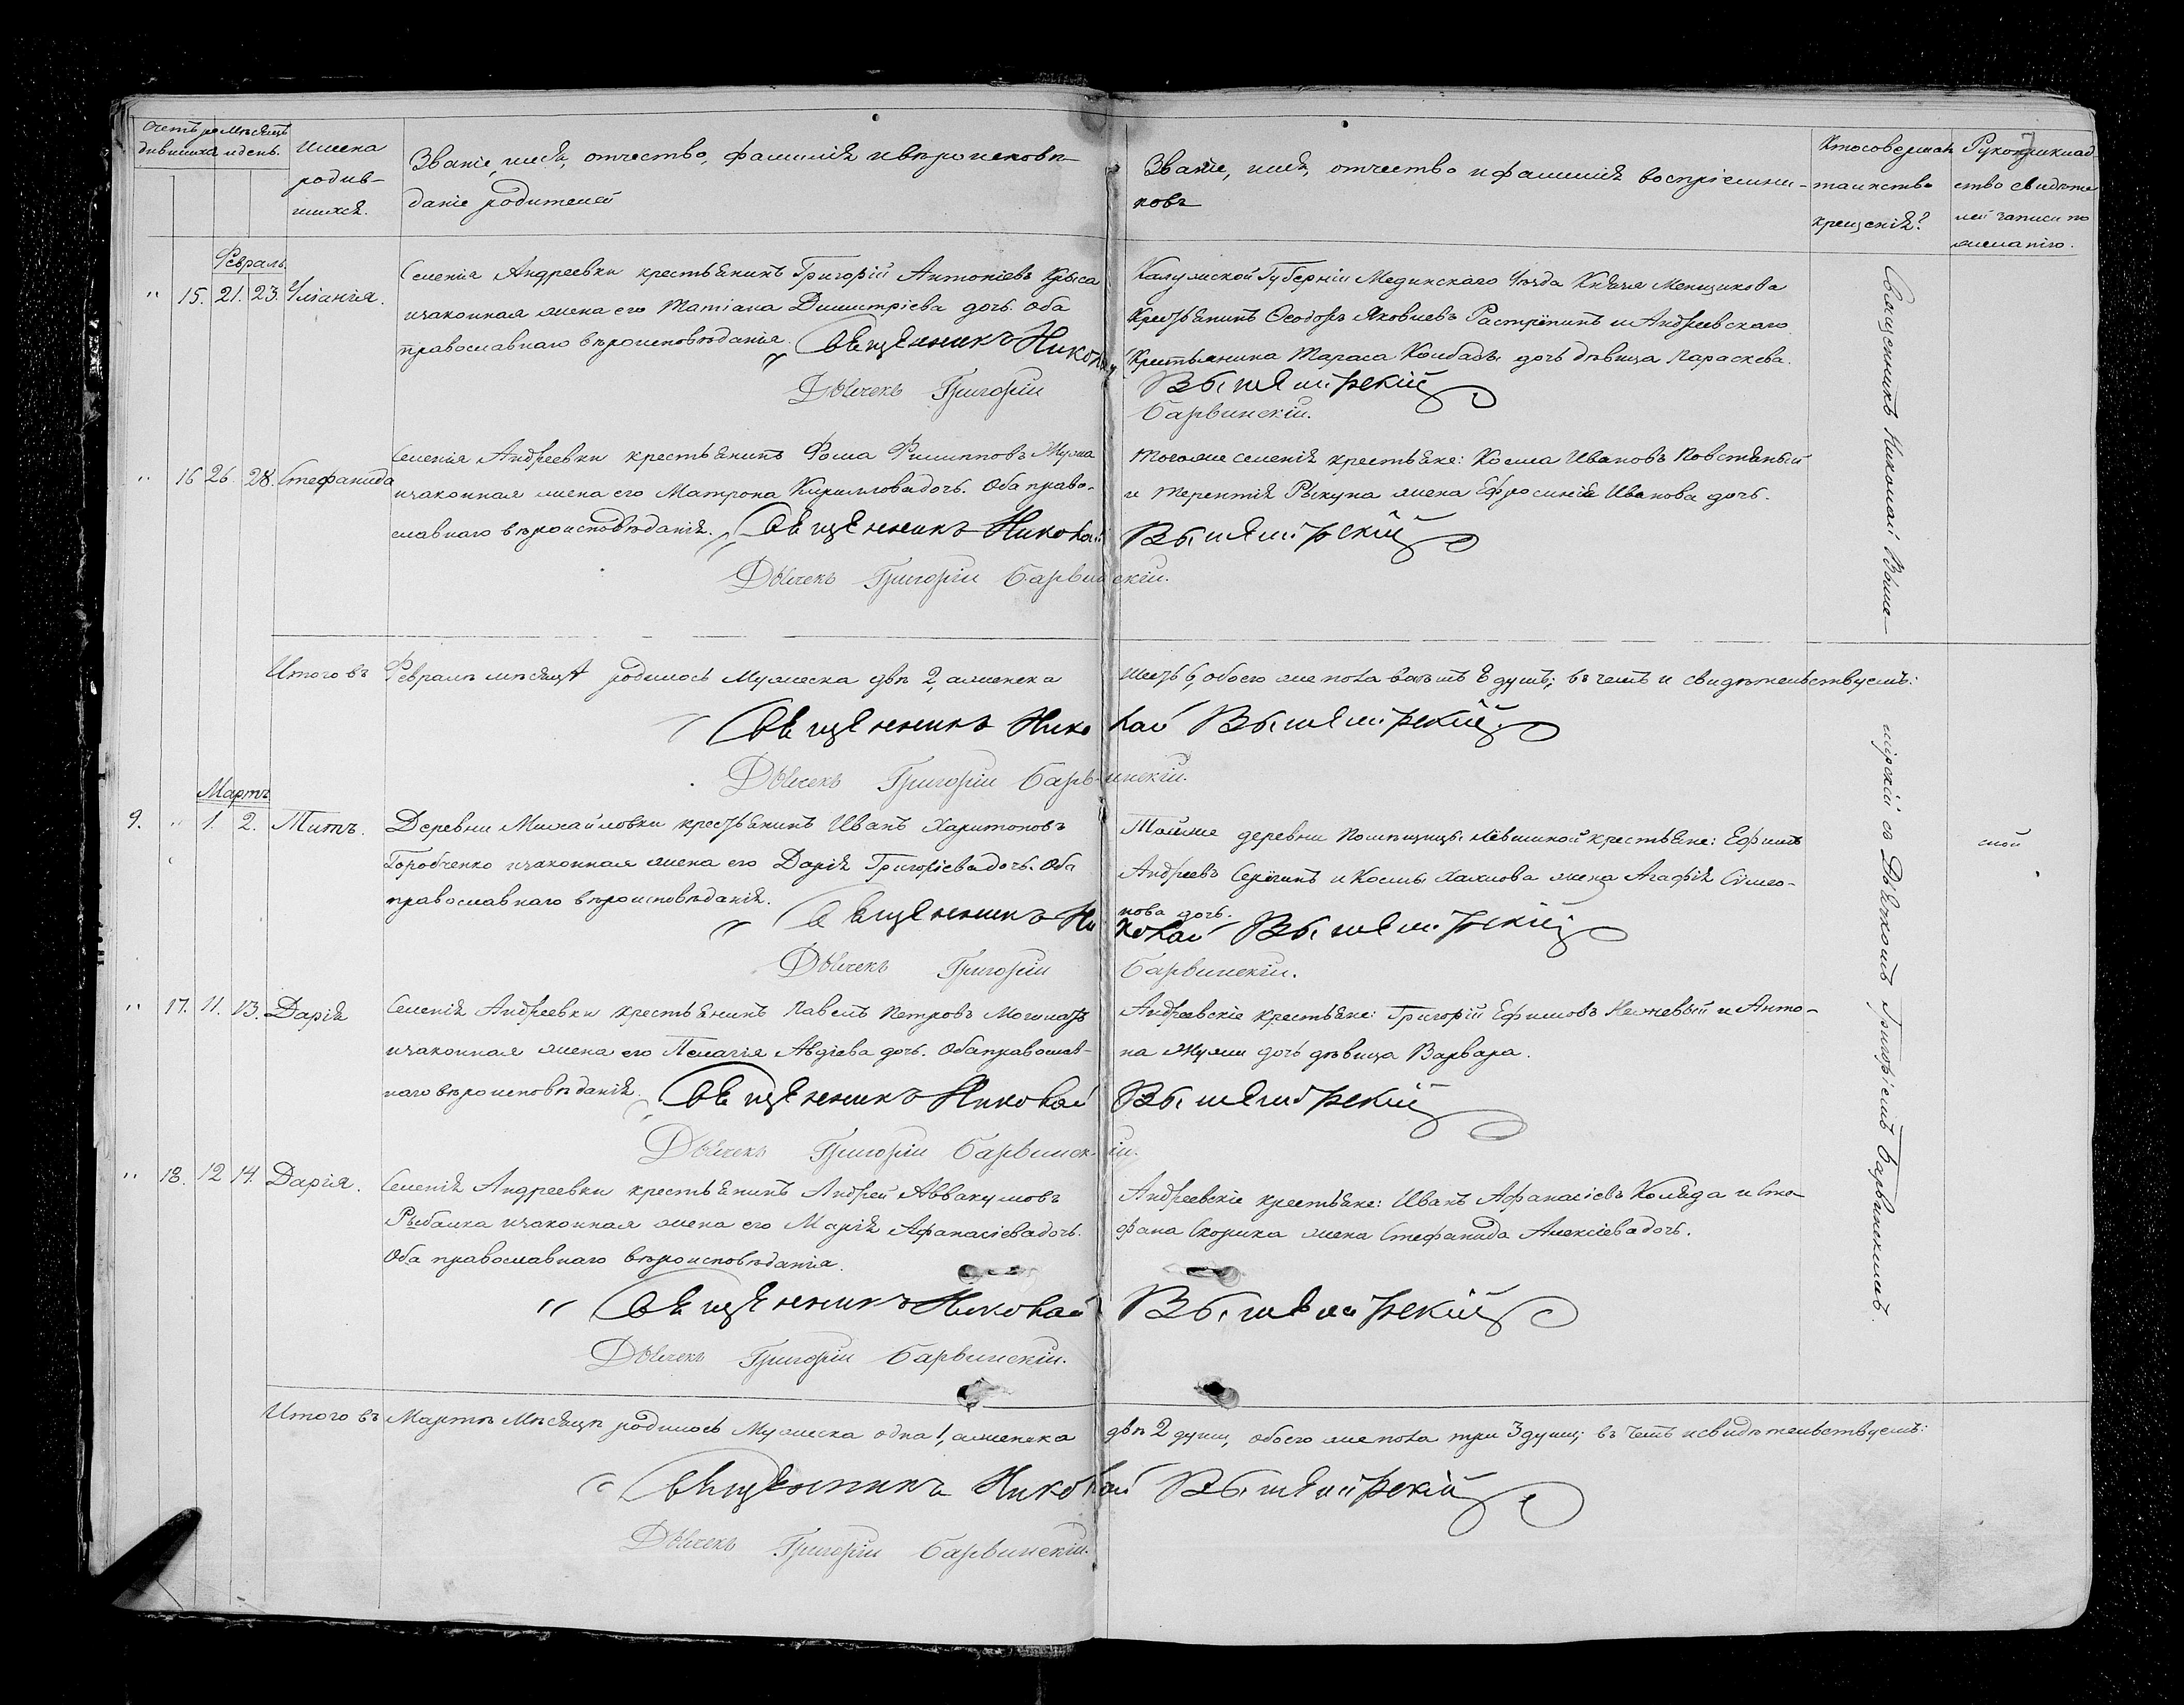 Счетъ ро- дившихся
Мѣсяцъ и день.
Имена родив- шихся.
Званіе, имя, отчество, фамилія и вѣроисповѣ-
даніе родителей
Званіе, имя, отчество и фамилія воспріемни-
ковъ
Кто совершалъ
таинство
крещенія?
Рукоприклад-
ство свидѣте
лей записи по
желанію.
Февраль.
" 15. 21. 23. Уліанія.
Селенія Андреевки крестьянинъ Григорій Антоніевъ Крыса
и законная жена его Татіана Димитріева дочь. Оба
православнаго вѣроисповѣданія. Священникъ Николай
Дьячекъ Григорій
Калужской Губерніи Мединскаго Уѣзда Князя Менщикова
Крестьянинъ Ѳеодоръ Яковлевъ Растрепинъ и Андреевскаго
Крестьянина Тараса Колбасы дочь дѣвица Параскева.
Вышемірскій
Барвинскій.
" 16 26. 28. Стефанида
Селенія Андреевки крестьянинъ Фома Филипповъ Мужа
и законная жена его Матрона Кириллова дочь. Оба право-
славнаго вѣроисповѣданія. Священникъ Николай
Дьячекъ Григорій Барвинскій.
Тогоже селенія крестьяне: Косма Ивановъ Повстяный
и Терентія Рыкуна жена Ефросинія Иванова дочь.
Вышемірскій
Итого въ Февралѣ мѣсяцѣ родилось Мужеска двѣ 2, а женска шесть 6, обоего же пола восемь 8 душъ; въ чемъ и свидѣтельствуемъ:
Священникъ Николай Вышемірскій
Дьячекъ Григорій Барвинскій.
Мартъ
9. " 1. 2. Титъ.
Деревни Михайловки крестьянинъ Иванъ Харитоновъ
Горобченко и законная жена его Дарія Григоріева дочь. Оба
православнаго вѣроисповѣданія.
Священникъ Николай Вышемірскій
Дьячекъ Григорій Барвинскій.
Тойже деревни Помѣщицы Лёвшиной крестьяне: Ефимъ
Андреевъ Серёгинъ и Космы Хахлова жена Агафія Симео-
нова дочь.
той
" 17. 11. 13. Дарія
Селенія Андреевки крестьянинъ Павелъ Петровъ Могилатъ
и законная жена его Пелагія Авдіева дочь. Оба православ-
наго вѣроисповѣданія. Священникъ Николай
Дьячекъ Григорій Барвинскій.
Андреевскіе крестьяне: Григорій Ефимовъ Нежевый и Анто-
на Мужи дочь дѣвица Варвара.
Вышемірскій
" 18. 12 14. Дарія.
Селенія Андреевки крестьянинъ Андрей Аввакумовъ
Рыбалка и законная жена его Марія Афанасіева дочь.
Оба православнаго вѣроисповѣданія.
Священникъ Николай Вышемірскій
Дьячекъ Григорій Барвинскій.
Андреевскіе крестьяне: Иванъ Афанасіевъ Коляда и Сте-
фана Скорика жена Стефанида Алексіева дочь.
Итого въ Мартѣ Мѣсяцѣ родилось Мужеска одна 1, а женска двѣ 2 души, обоего же пола три 3 души; въ чемъ и свидѣтельствуемъ:
Священникъ Николай Вышемірскій
Дьячекъ Григорій Барвинскій.
Священникъ Николай Выше-
мірскій съ Дьячкомъ Григоріемъ Барвинскимъ.